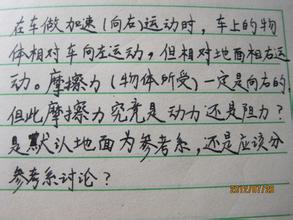 在车做加速(向右)运动时，车上的物
体相对车向左运动，但相对地面相右运
动。摩擦力(物体所受)一定是向右的，
但此摩擦力究竟是动力还是阻力？
是默认地面为参考系，还是应该分
参考系讨论？
2012/07/28